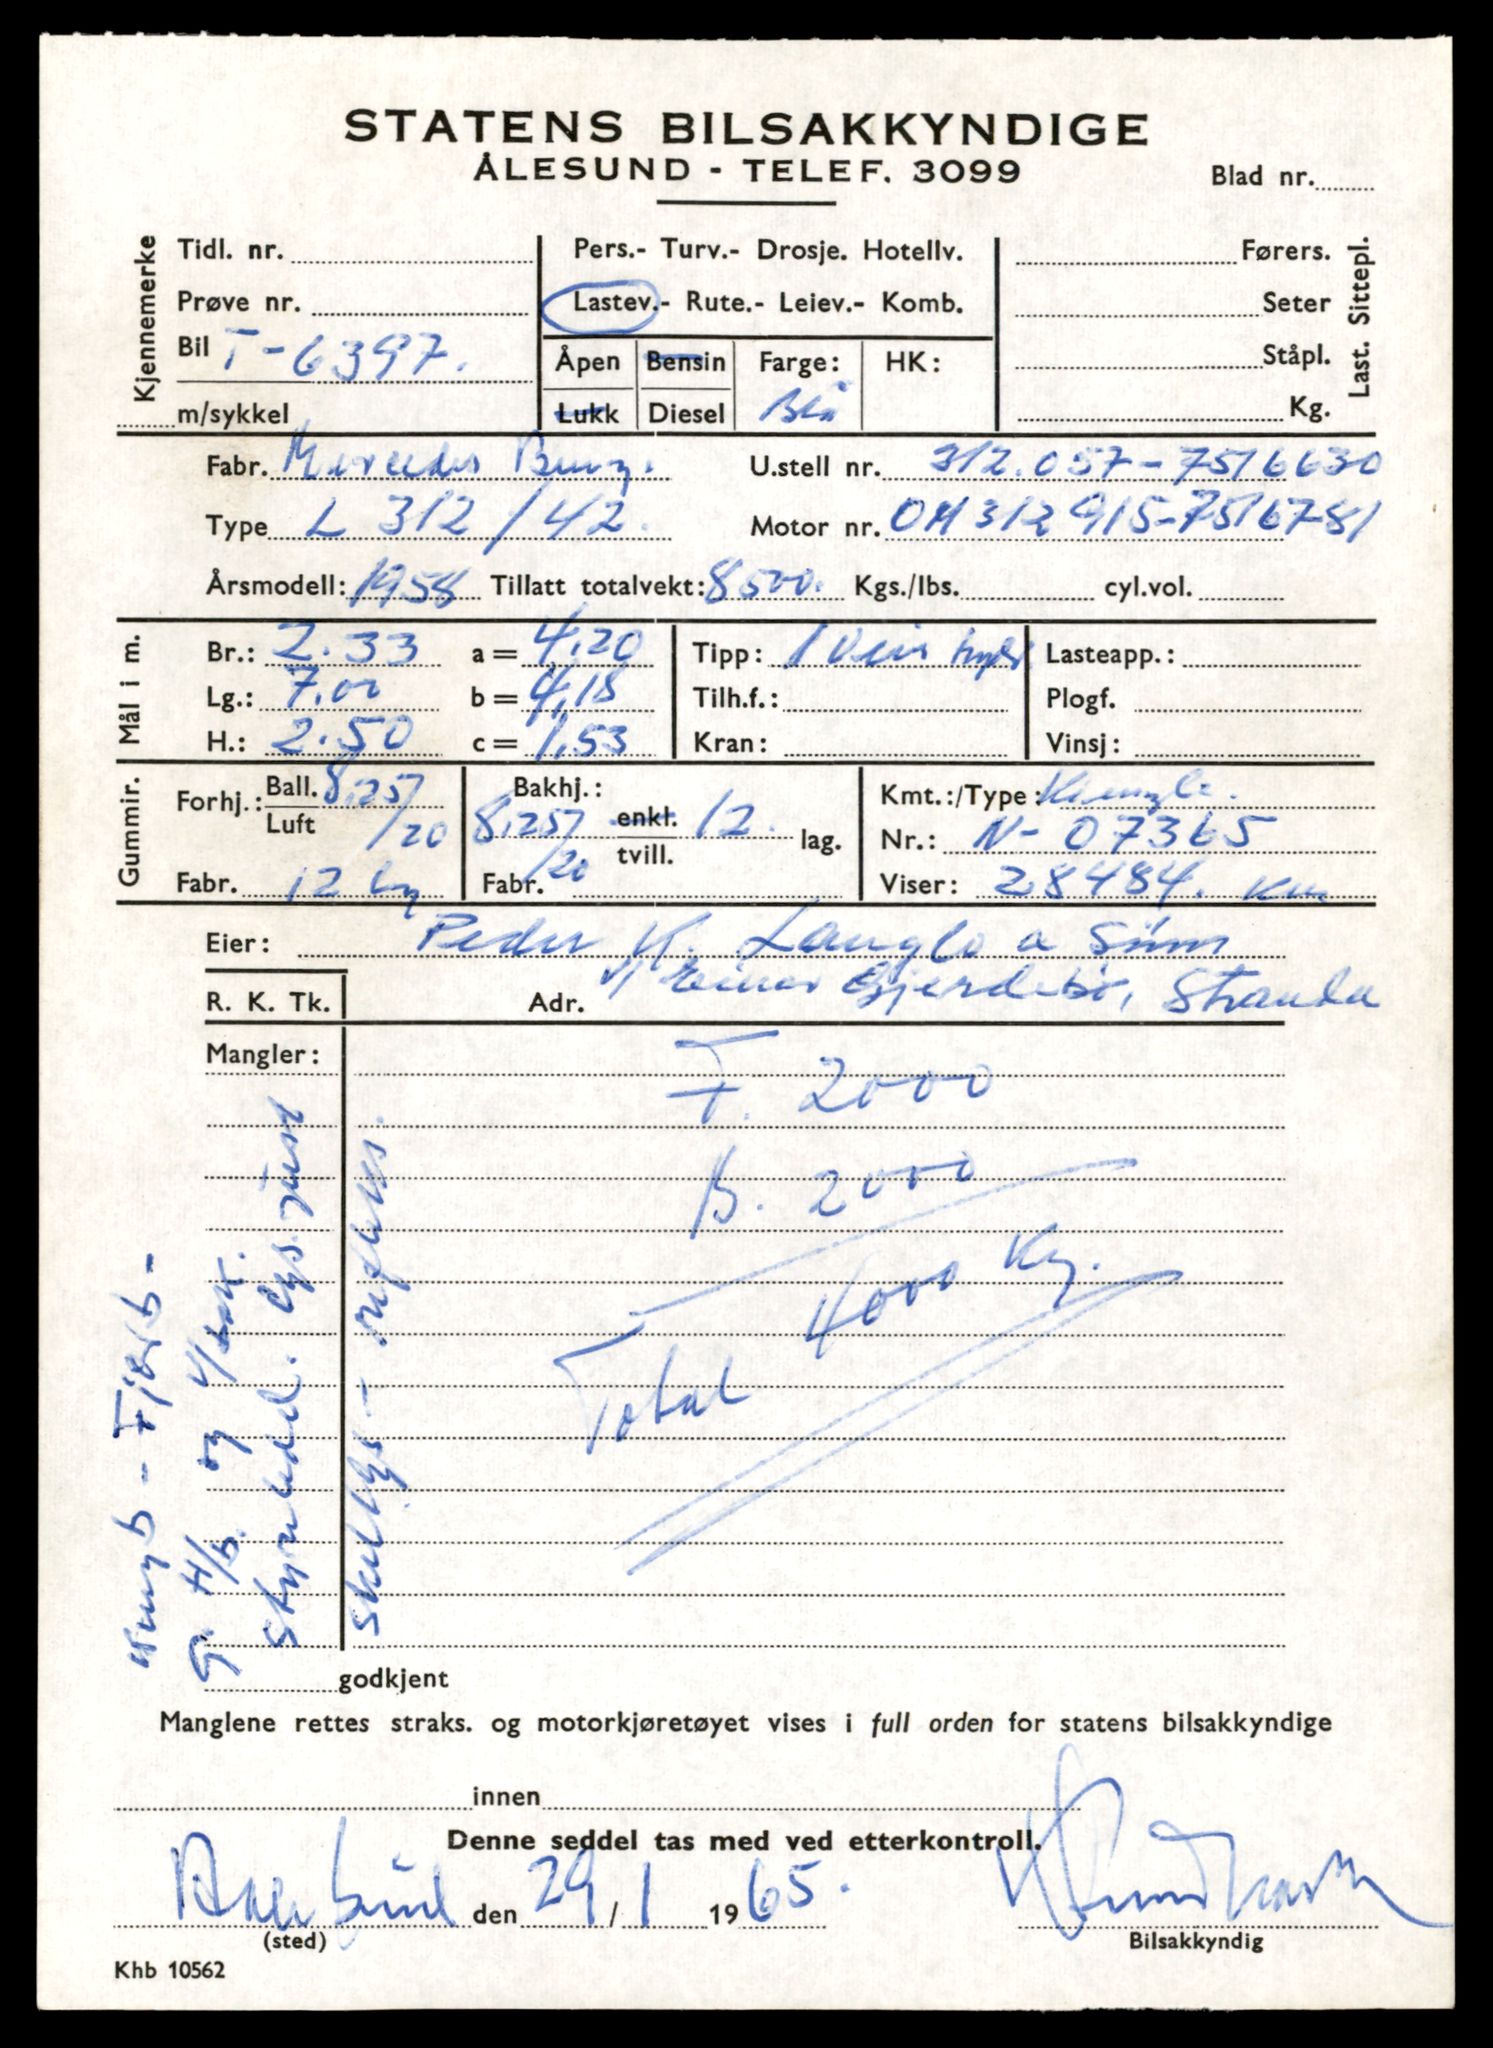 STATENS BILSAKKYNDIGE
ÅLESUND - TELEF. 3099
Blad nr.
Kjennemerke
Tidl. nr.
Prøve nr.
Bil T-6397.
m/sykkel
Pers.- Turv.- Drosje. Hotellv.
Lastev.- Rute.- Leiev.- Komb.
Åpen Bensin Farge: HK:
Lukk Diesel Blå
Last. Sittepl.
Førers.
Seter
Ståpl.
Kg.
Fabr. Mercedes Benz. U.stell nr. 312.057-7516630
Type L 312/42. Motor nr. OM312915-7516781
Årsmodell: 1958 Tillatt totalvekt: 8500. Kgs./lbs. cyl.vol.
Mål i m.
Br.: 2.33 a = 4,20 Tipp: 1 Lasteapp.:
Lg.: 7,00 b = 4,18 Tilh.f.: Plogf.
H.: 2.50 c = 1,53 Kran: Vinsj:
Gummir.
Forhj.: Ball. 8,25/20
Luft
Fabr. 12 lag
Bakhj.:
8,25/20 enkl. 12. lag.
tvill.
Fabr.
Kmt.:/Type: Kienzle.
Nr.: N- 07365
Viser: 28484. km
Eier: Peder K. Langlo a Sönn
R. K. Tk. Adr. v/ Einar Gjerdebø, Stranda
Mangler:
F. 2000
B. 2000
Total 4000 Kg.
og
godkjent
Manglene rettes straks. og motorkjøretøyet vises i full orden for statens bilsakkyndige
innen
Denne seddel tas med ved etterkontroll.
Aalesund den 29/1 1965.
(sted)
Bilsakkyndig
Khb 10562